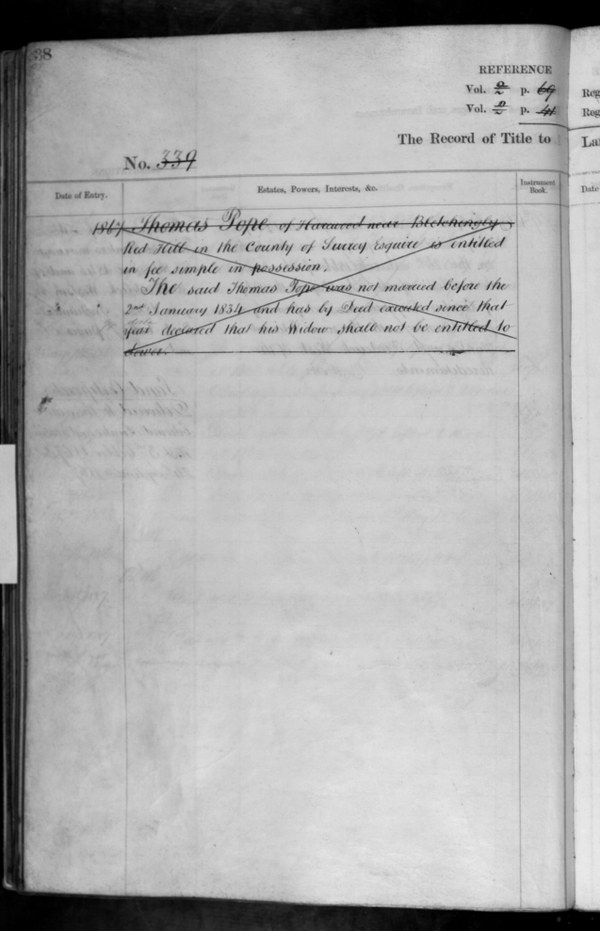 38
REFERENCE
Vol. 2 p. 69
Vol. 2 p. 41
Reg
Reg
The Record of Title to
La
No. 339
Date of Entry.
Estates, Powers, Interests, &c.
Instrument Book.
Date
1867 Thomas Pope of Harewood near Bletchingly
Red Hill in the County of Surrey Esquire is entitled
in fee simple in possession.
The said Thomas Pope was not married before the
2nd January 1834 and has by Deed executed since that
declared that his Widow shall not be entitled to
dower.